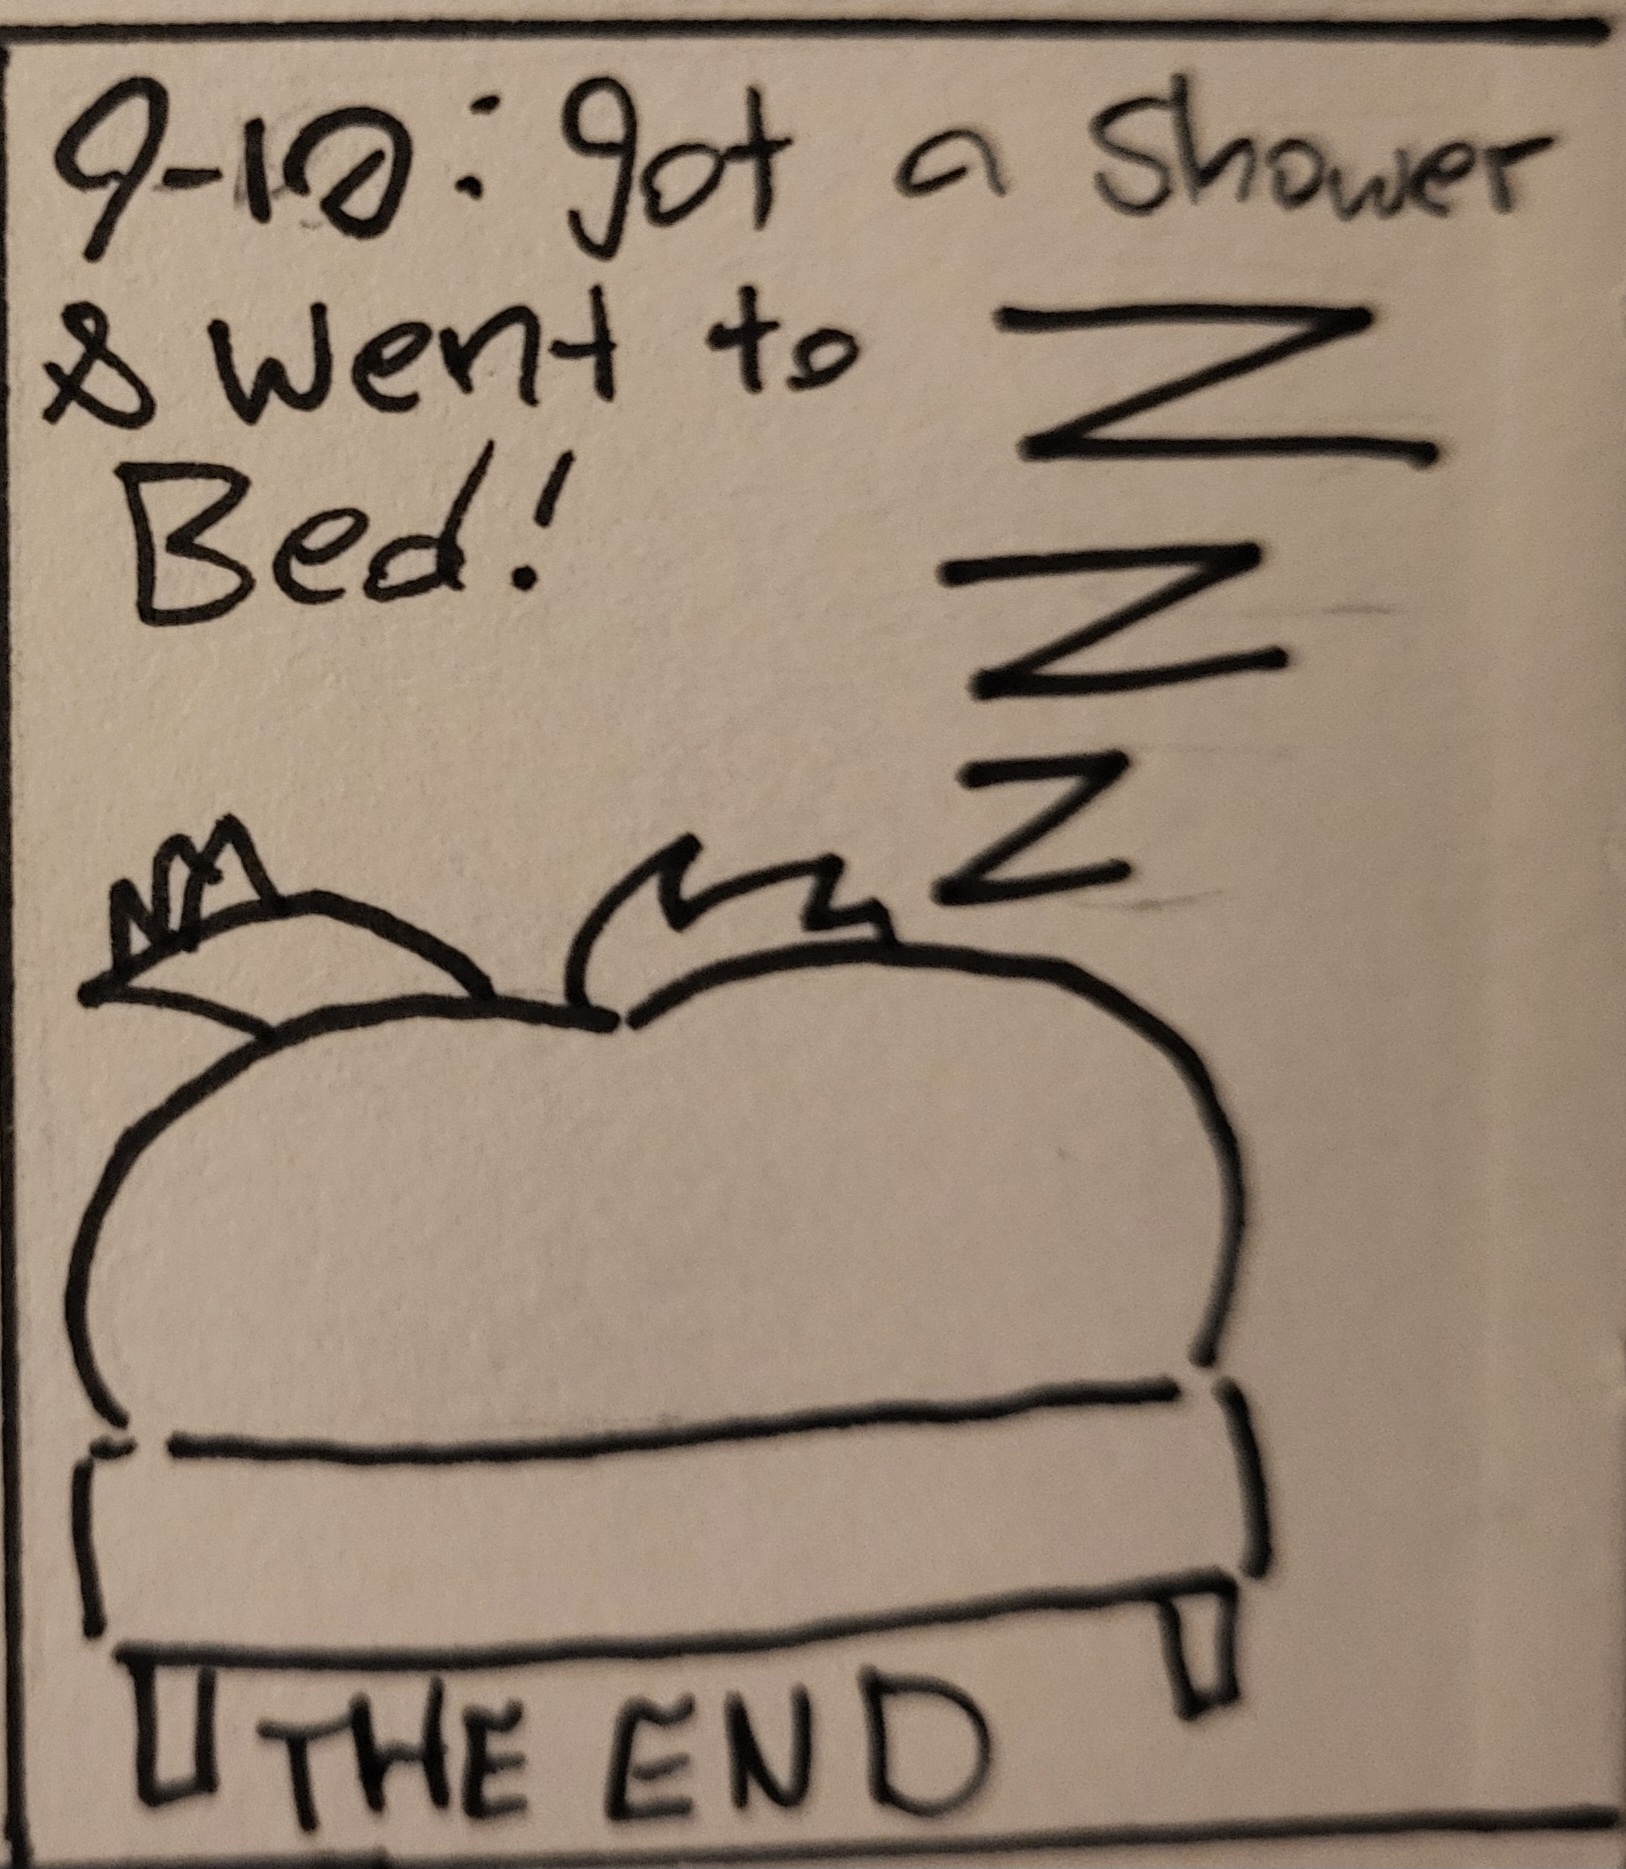 9-10: got a Shower
& went to
Bed!
Z
Z
Z
THE END